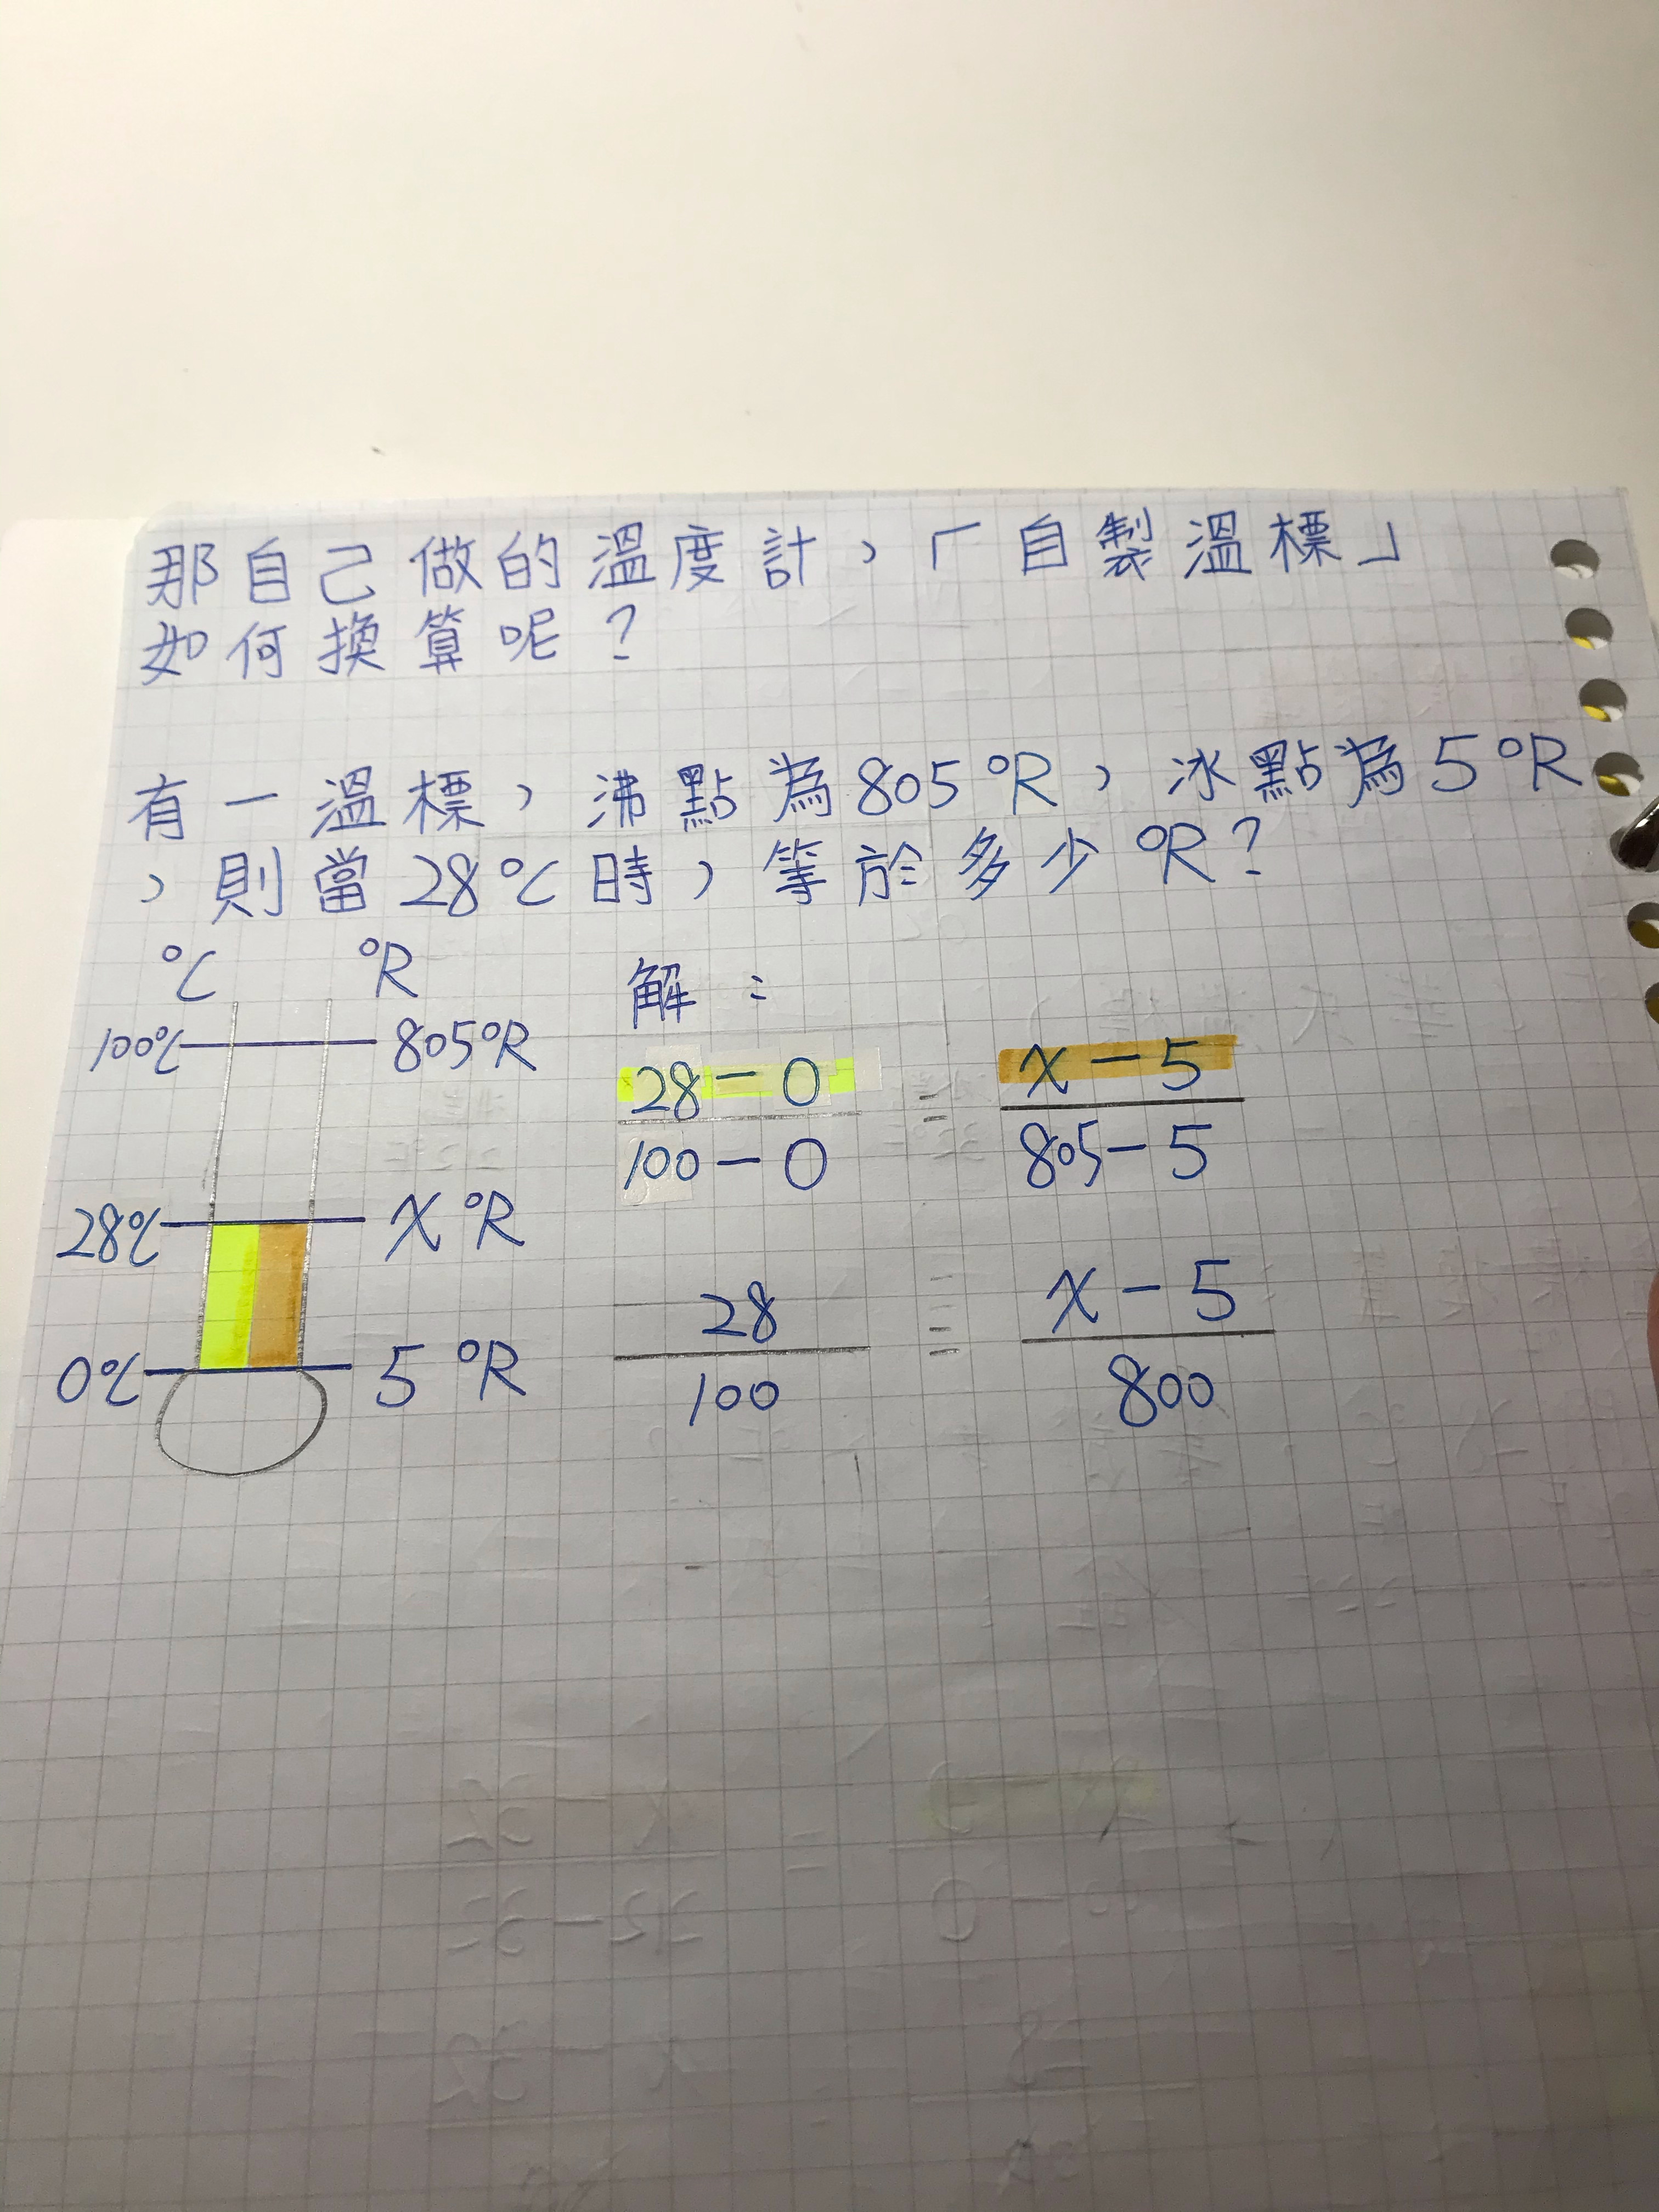 那自己做的溫度計，「自製溫標」
如何換算呢？
有一溫標，沸點為805°R，冰點為5°R
，則當28℃時，等於多少°R？
℃ °R
100℃ 805°R
28℃ X°R
0℃ 5°R
解：
28-0 = X-5
100-0 805-5
28 = X-5
100 800